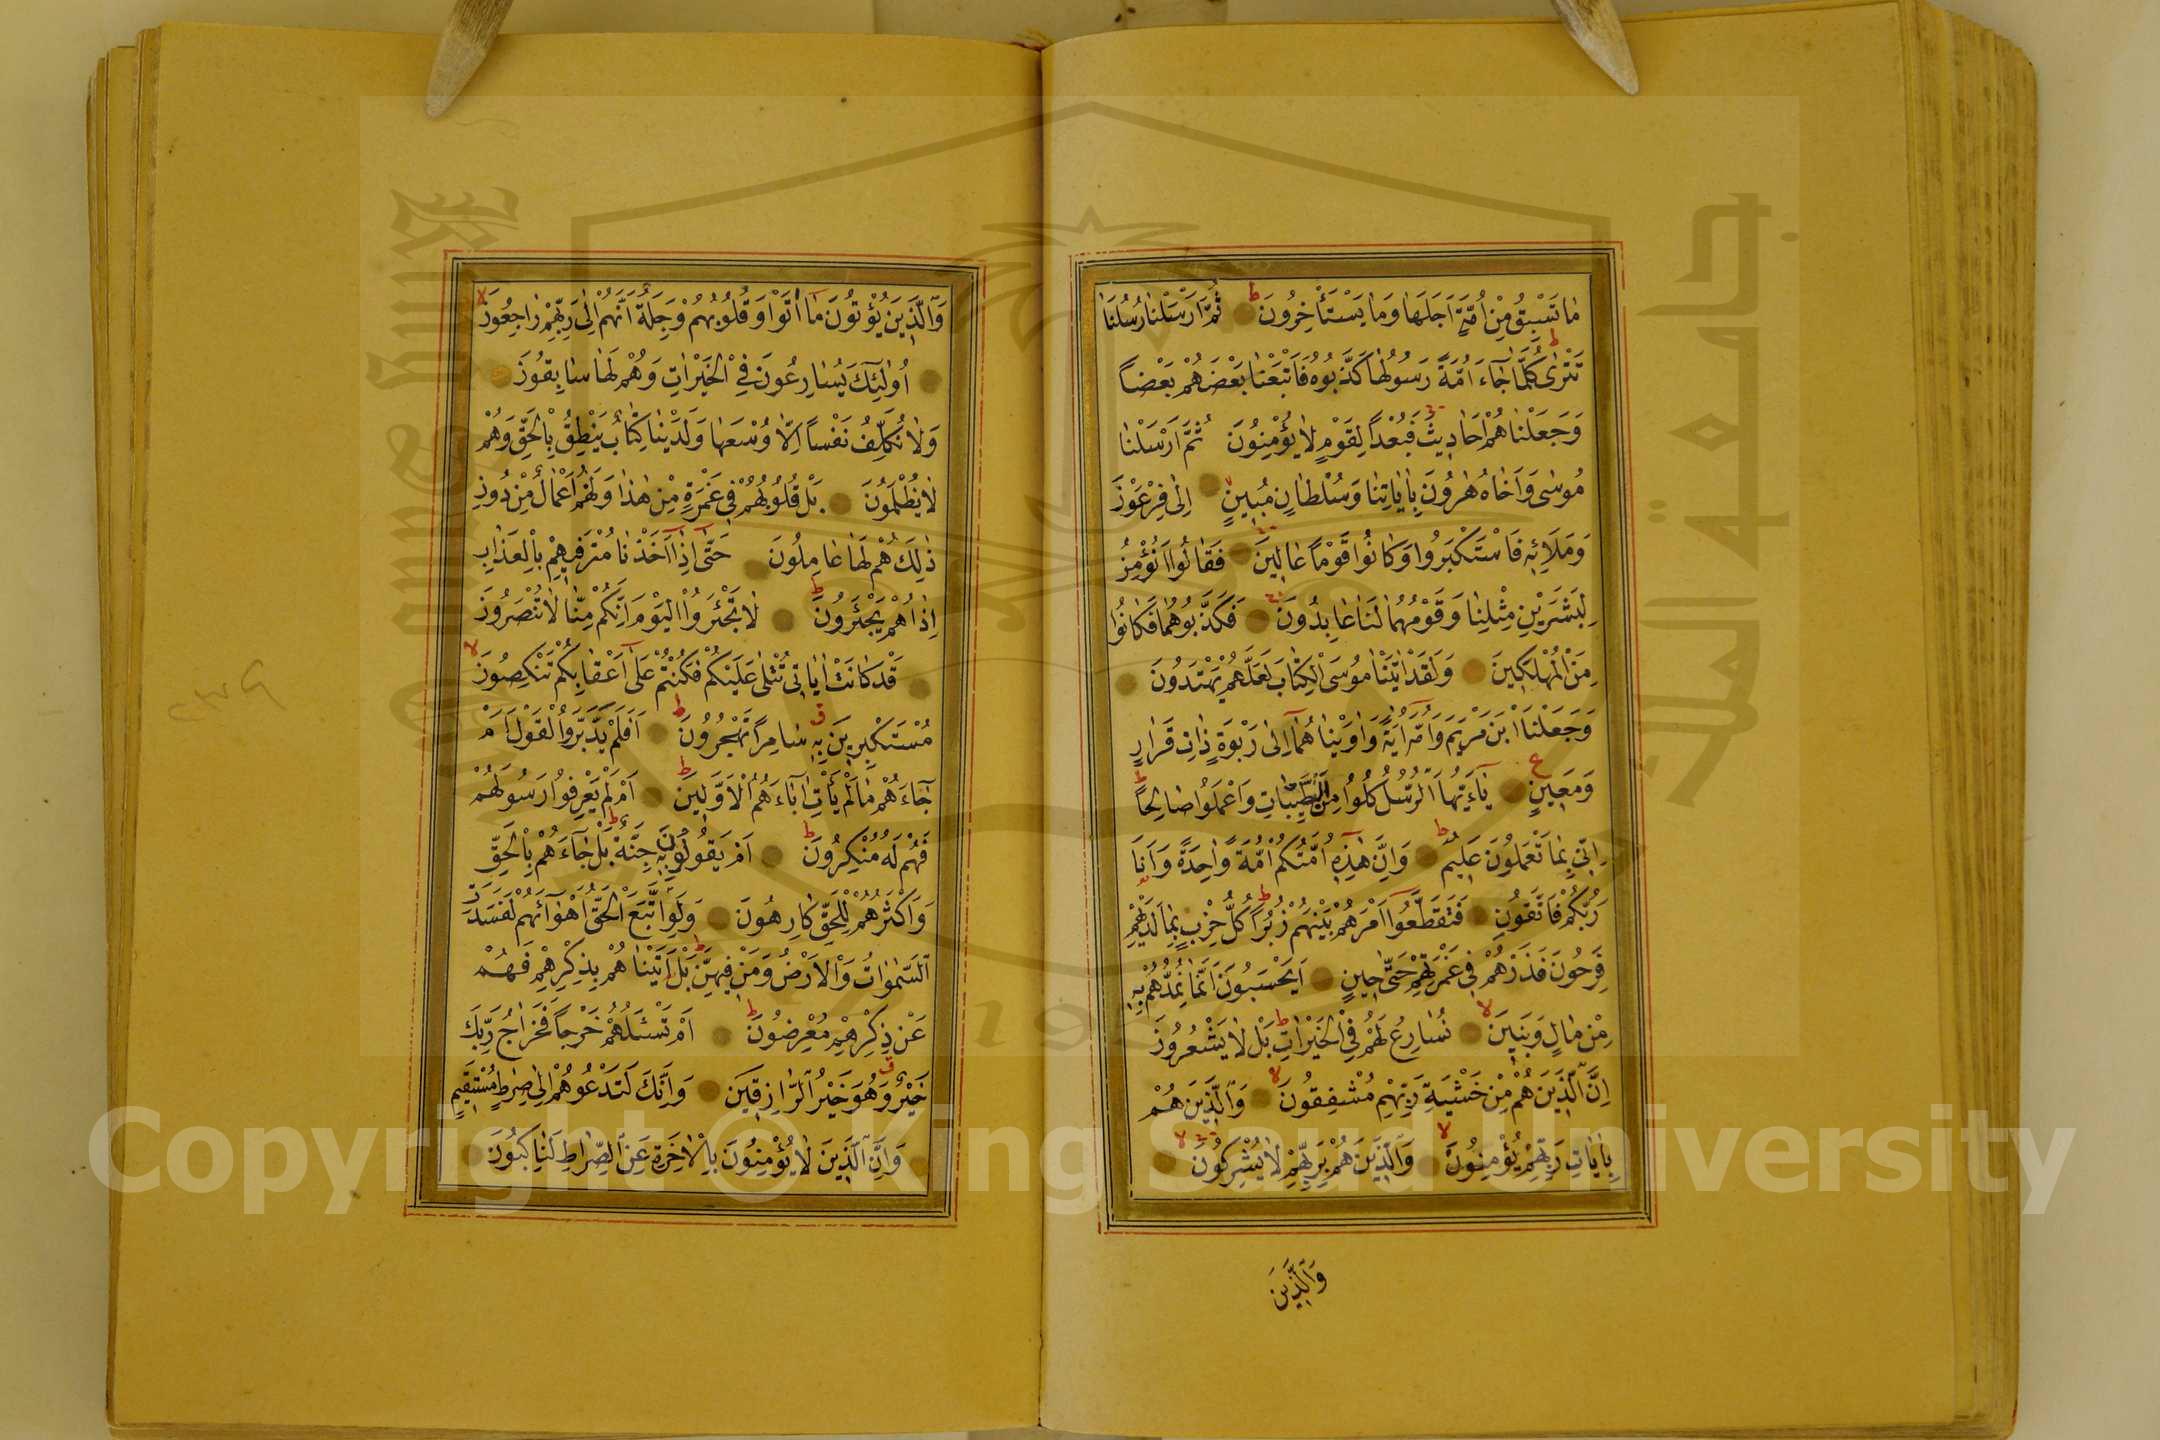 مَا تَسْبِقُ مِنْ اُمَّةٍ اَجَلَهَا وَمَا يَسْتَأْخِرُونَ ثُمَّ اَرْسَلْنَا رُسُلَنَا
تَتْرٰى كُلَّمَا جَاءَ اُمَّةً رَسُولُهَا كَذَّبُوهُ فَاَتْبَعْنَا بَعْضَهُمْ بَعْضًا
وَجَعَلْنَاهُمْ اَحَادِيثَ فَبُعْدًا لِقَوْمٍ لَا يُؤْمِنُونَ ثُمَّ اَرْسَلْنَا
مُوسٰى وَاَخَاهُ هٰرُونَ بِاٰيَاتِنَا وَسُلْطَانٍ مُبِينٍ اِلٰى فِرْعَوْنَ
وَمَلَائِهِ فَاسْتَكْبَرُوا وَكَانُوا قَوْمًا عَالِينَ فَقَالُوا اَنُؤْمِنُ
لِبَشَرَيْنِ مِثْلِنَا وَقَوْمُهُمَا لَنَا عَابِدُونَ فَكَذَّبُوهُمَا فَكَانُوا
مِنَ الْمُهْلَكِينَ وَلَقَدْ اٰتَيْنَا مُوسَى الْكِتَابَ لَعَلَّهُمْ يَهْتَدُونَ
وَجَعَلْنَا ابْنَ مَرْيَمَ وَاُمَّهُ اٰيَةً وَاٰوَيْنَاهُمَا اِلٰى رَبْوَةٍ ذَاتِ قَرَارٍ
وَمَعِينٍ يَاءَيُّهَا الرُّسُلُ كُلُوا مِنَ الطَّيِّبَاتِ وَاعْمَلُوا صَالِحًا
اِنِّي بِمَا تَعْمَلُونَ عَلِيمٌ وَاِنَّ هٰذِهِ اُمَّتُكُمْ اُمَّةً وَاحِدَةً وَاَنَا
رَبُّكُمْ فَاتَّقُونِ فَتَقَطَّعُوا اَمْرَهُمْ بَيْنَهُمْ زُبُرًا كُلُّ حِزْبٍ بِمَا لَدَيْهِمْ
فَرِحُونَ فَذَرْهُمْ فِي غَمْرَتِهِمْ حَتّٰى حِينٍ اَيَحْسَبُونَ اَنَّمَا نُمِدُّهُمْ بِهِ
مِنْ مَالٍ وَبَنِينَ نُسَارِعُ لَهُمْ فِي الْخَيْرَاتِ بَلْ لَا يَشْعُرُونَ
اِنَّ الَّذِينَ هُمْ مِنْ خَشْيَةِ رَبِّهِمْ مُشْفِقُونَ وَالَّذِينَ هُمْ
بِاٰيَاتِ رَبِّهِمْ يُؤْمِنُونَ وَالَّذِينَ هُمْ بِرَبِّهِمْ لَا يُشْرِكُونَ
وَالَّذِينَ
وَالَّذِينَ يُؤْتُونَ مَا اٰتَوْا وَقُلُوبُهُمْ وَجِلَةٌ اَنَّهُمْ اِلٰى رَبِّهِمْ رَاجِعُونَ
اُولٰئِكَ يُسَارِعُونَ فِي الْخَيْرَاتِ وَهُمْ لَهَا سَابِقُونَ
وَلَا نُكَلِّفُ نَفْسًا اِلَّا وُسْعَهَا وَلَدَيْنَا كِتَابٌ يَنْطِقُ بِالْحَقِّ وَهُمْ
لَا يُظْلَمُونَ بَلْ قُلُوبُهُمْ فِي غَمْرَةٍ مِنْ هٰذَا وَلَهُمْ اَعْمَالٌ مِنْ دُونِ
ذٰلِكَ هُمْ لَهَا عَامِلُونَ حَتّٰى اِذَا اَخَذْنَا مُتْرَفِيهِمْ بِالْعَذَابِ
اِذَا هُمْ يَجْئَرُونَ لَا تَجْئَرُوا الْيَوْمَ اِنَّكُمْ مِنَّا لَا تُنْصَرُونَ
قَدْ كَانَتْ اٰيَاتِي تُتْلٰى عَلَيْكُمْ فَكُنْتُمْ عَلٰى اَعْقَابِكُمْ تَنْكِصُونَ
مُسْتَكْبِرِينَ بِهِ سَامِرًا تَهْجُرُونَ اَفَلَمْ يَدَّبَّرُوا الْقَوْلَ اَمْ
جَاءَهُمْ مَا لَمْ يَأْتِ اٰبَاءَهُمُ الْاَوَّلِينَ اَمْ لَمْ يَعْرِفُوا رَسُولَهُمْ
فَهُمْ لَهُ مُنْكِرُونَ اَمْ يَقُولُونَ بِهِ جِنَّةٌ بَلْ جَاءَهُمْ بِالْحَقِّ
وَاَكْثَرُهُمْ لِلْحَقِّ كَارِهُونَ وَلَوِ اتَّبَعَ الْحَقُّ اَهْوَاءَهُمْ لَفَسَدَتِ
السَّمٰوَاتُ وَالْاَرْضُ وَمَنْ فِيهِنَّ بَلْ اَتَيْنَاهُمْ بِذِكْرِهِمْ فَهُمْ
عَنْ ذِكْرِهِمْ مُعْرِضُونَ اَمْ تَسْئَلُهُمْ خَرْجًا فَخَرَاجُ رَبِّكَ
خَيْرٌ وَهُوَ خَيْرُ الرَّازِقِينَ وَاِنَّكَ لَتَدْعُوهُمْ اِلٰى صِرَاطٍ مُسْتَقِيمٍ
وَاِنَّ الَّذِينَ لَا يُؤْمِنُونَ بِالْاٰخِرَةِ عَنِ الصِّرَاطِ لَنَاكِبُونَ
Copyright © King Saud University